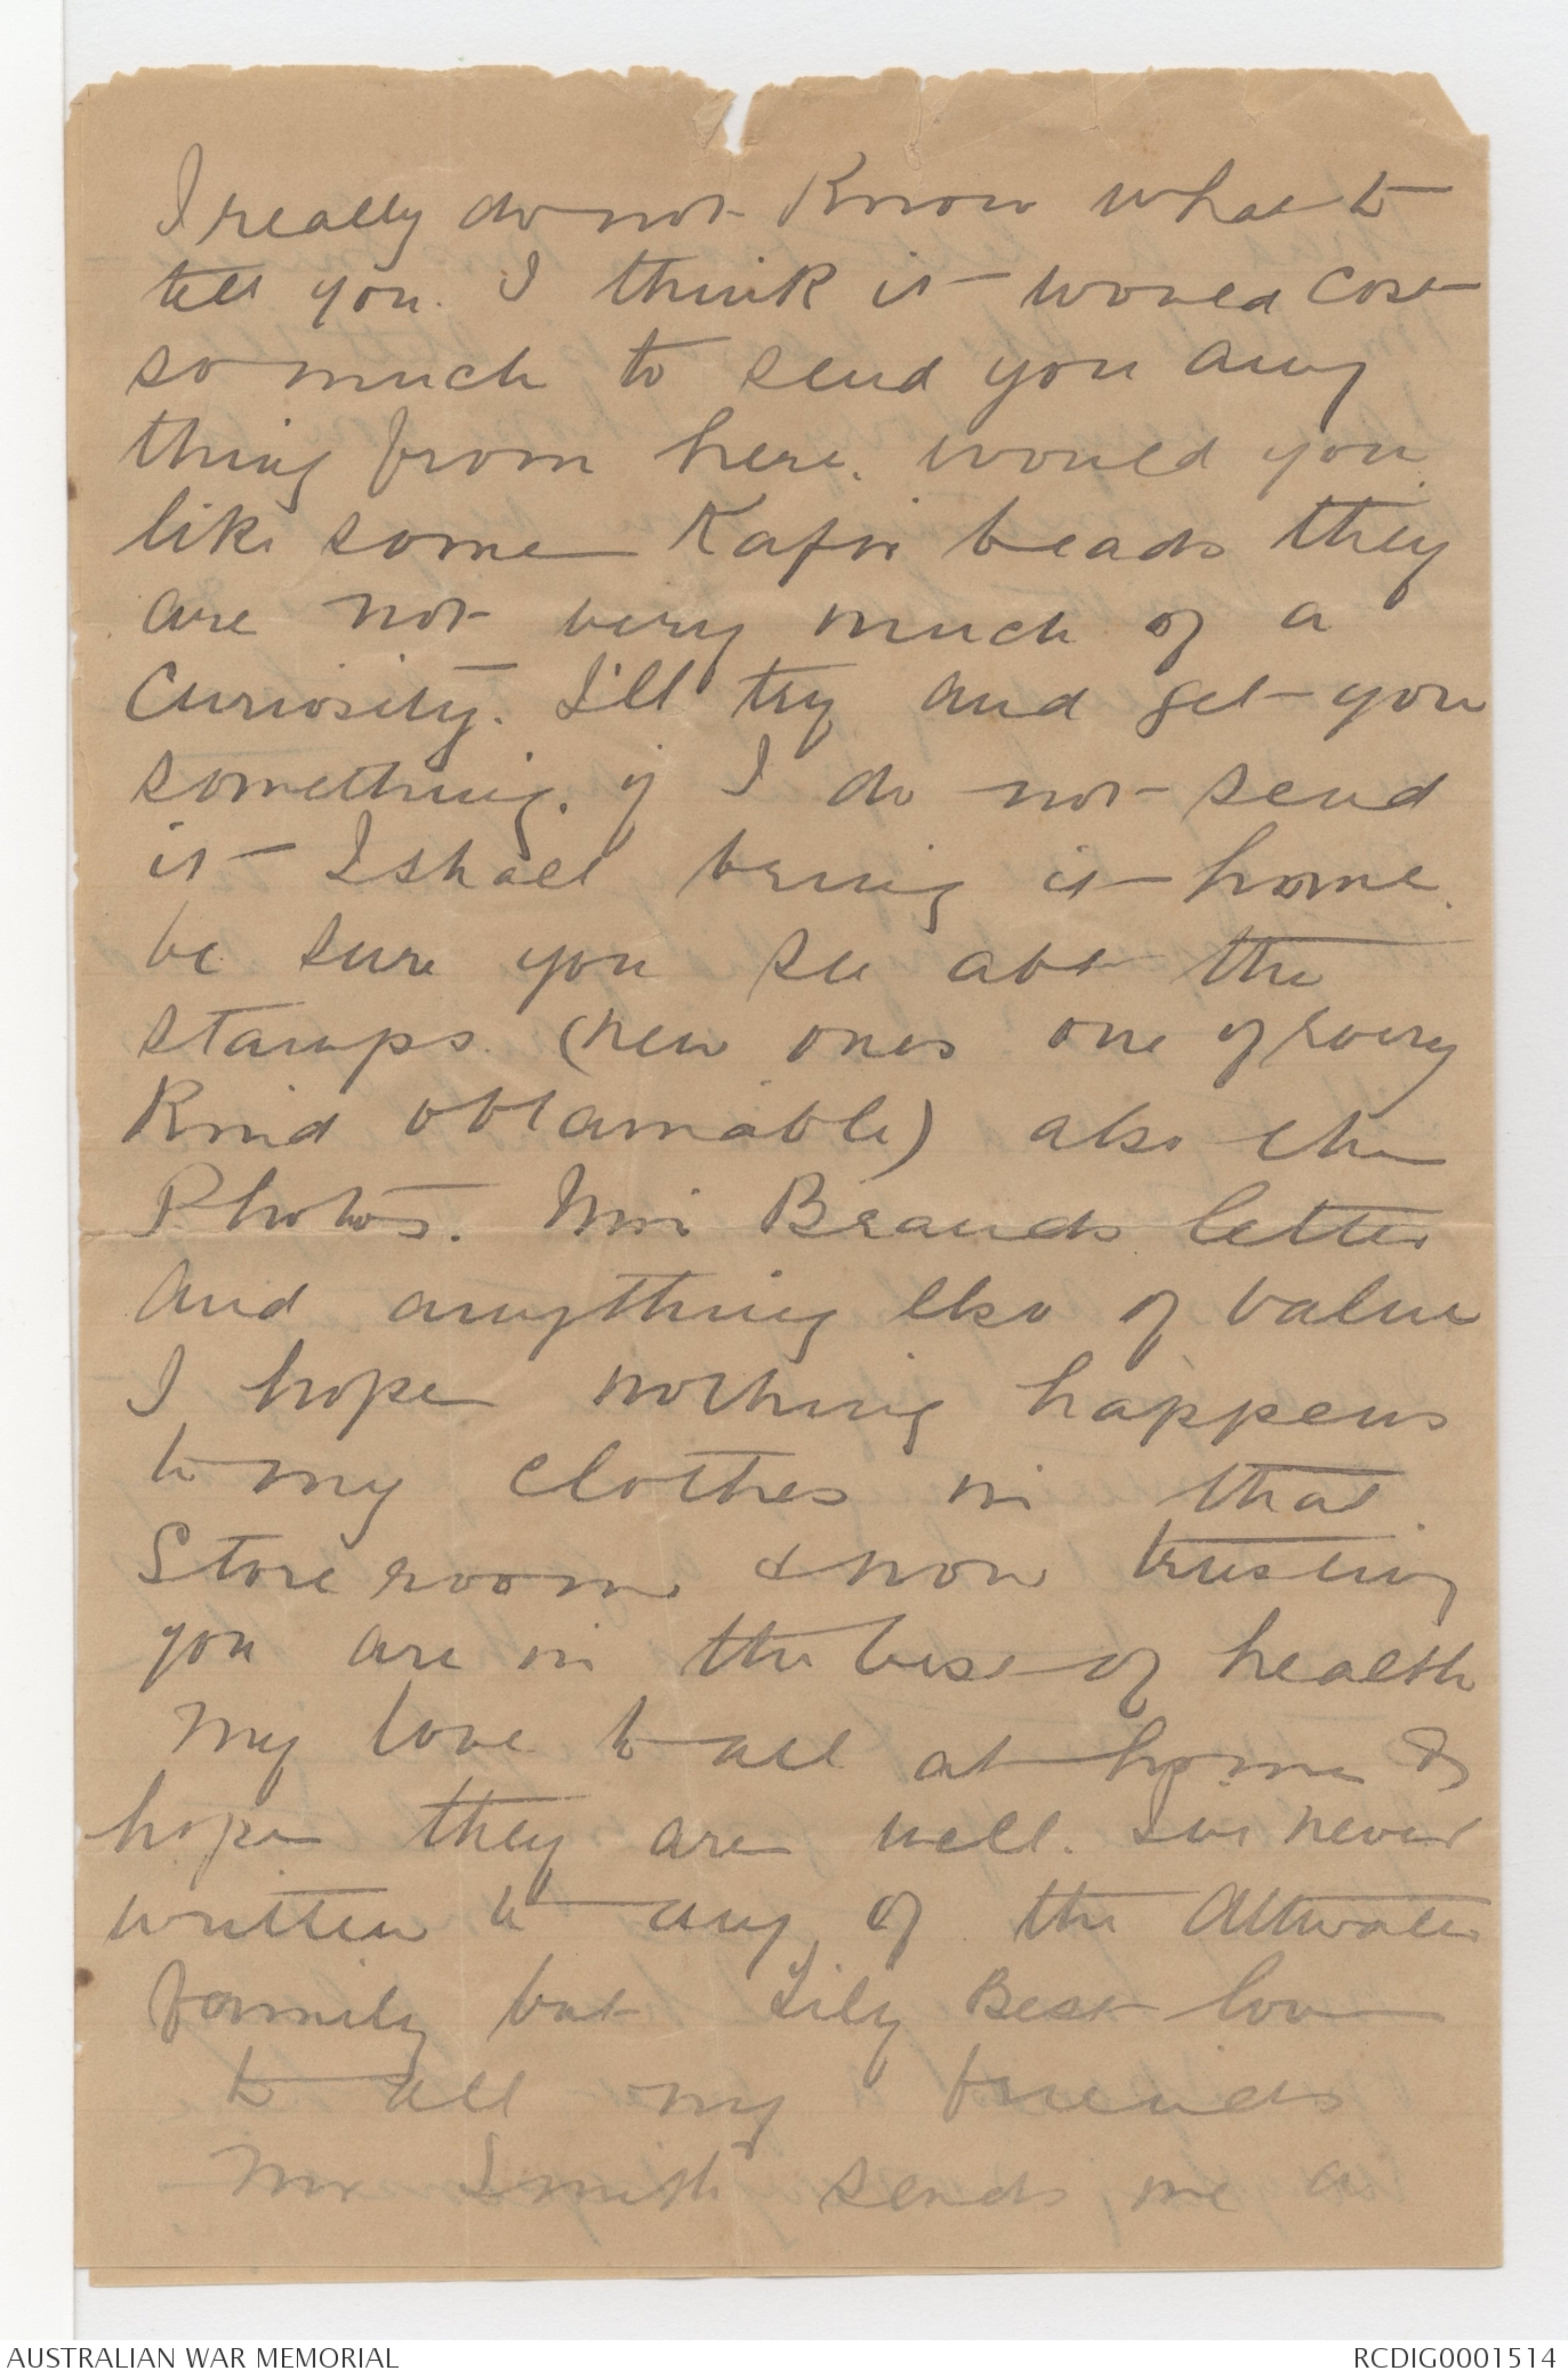 I really do not Know what to
tell you. I think it would cost
so much to send you any
thing from here. would you
like some Kafir beads they
are not very much of a
Curiosity. I'll try and get you
something. if I do not send
it I shall bring it home.
be sure you see abt the
stamps. (new ones one of every
Kind obtainable) also the
Photos. Miss Brands letter
and anything else of value
I hope nothing happens
to my clothes in that
Store room & now trusting
you are in the best of health
My love to all at home &
hope they are well. Ive never
written to any of the Attwater
family but Lily Best love
to all my friends
Mr Smith sends me a
AUSTRALIAN WAR MEMORIAL
RCDIG0001514